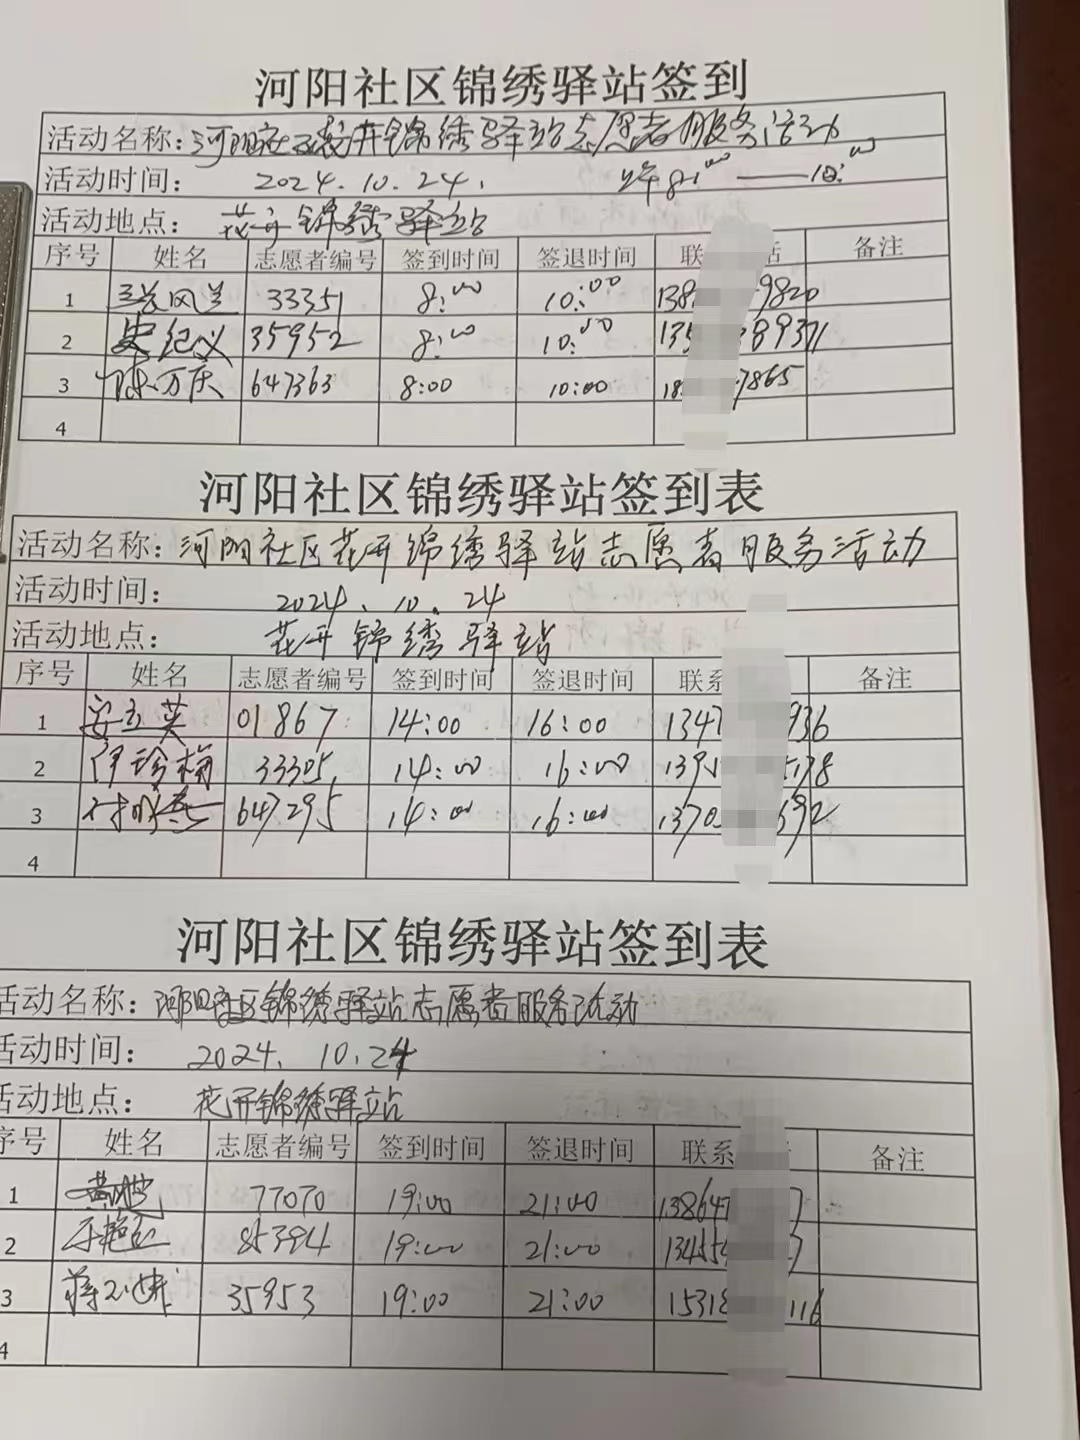 河阳社区锦绣驿站签到
活动名称：河阳社区花开锦绣驿站志愿者服务活动
活动时间： 2024.10.24. 8:00——10:00
活动地点： 花开锦绣驿站
序号 姓名 志愿者编号 签到时间 签退时间 联 话 备注
1 风兰 33351 8:00 10:00 138 9820
2 史纪义 35952 8:00 10:00 135 89371
3 陈万庆 647363 8:00 10:00 18 7865
4
河阳社区锦绣驿站签到表
活动名称：河阳社区花开锦绣驿站志愿者服务活动
活动时间： 2024.10.24
活动地点： 花开锦绣驿站
序号 姓名 志愿者编号 签到时间 签退时间 联系 备注
1 安立英 01867 14:00 16:00 1347 936
2 伊珍梅 33305 14:00 16:00 139 5178
3 647295 14:00 16:00 1370 692
4
河阳社区锦绣驿站签到表
活动名称：河阳社区锦绣驿站志愿者服务活动
活动时间： 2024.10.24
活动地点： 花开锦绣驿站
序号 姓名 志愿者编号 签到时间 签退时间 联系 备注
1 77070 19:00 21:00 13864 7
2 85394 19:00 21:00 13454 7
3 35953 19:00 21:00 15318 116
4